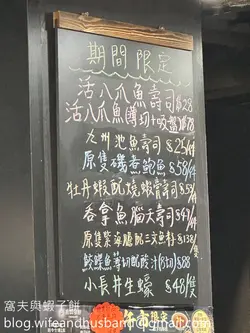 期間限定
活八爪魚壽司$28
活八爪魚(薄切+吸盤)$78
九州池魚壽司$25/件
原隻磯煮鮑魚$58/件
牡丹蝦配燒蝦膏壽司$52/件
吞拿魚腦天壽司$47/件
原隻紫海膽配三文魚籽$38/隻
鰈魚薄切配酸汁(8切)$88
小長井生蠔$48/隻
窩夫與蝦子餅
blog.wifeandhusband@gmail.com